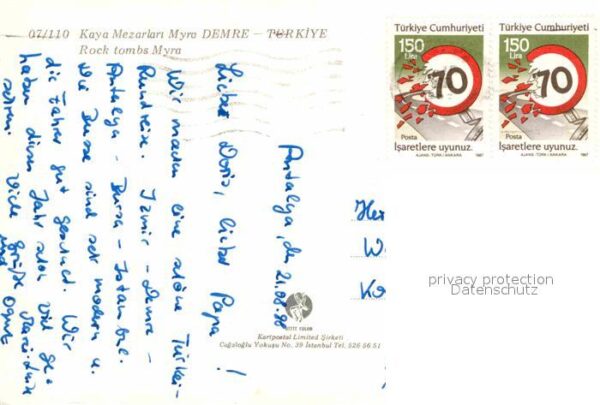 07/110 Kaya Mezarları Myra DEMRE – TÜRKİYE
Rock tombs Myra
Türkiye Cumhuriyeti
150
Lira
70
Posta
İşaretlere uyunuz.
AJANS-TÜRK / ANKARA 1987
Türkiye Cumhuriyeti
150
Lira
70
Posta
İşaretlere uyunuz.
AJANS-TÜRK / ANKARA 1987
Antalya, den 21.08.90
Liebe Doris, lieber Papa!
Wir machen eine schöne Türkei-
Rundreise. Izmir – Demre –
Antalya – Bursa – Istanbul.
Die Busse sind sehr modern u.
die Fahrer gut geschult. Wir
haben dieses Jahr schon viel ge-
sehen. Viele Grüße
und
Oguz
Her
W
K
privacy protection
Datenschutz
Kartpostal Limited Şirketi
Cağaloğlu Yokuşu No. 39 İstanbul Tel. 526 56 51